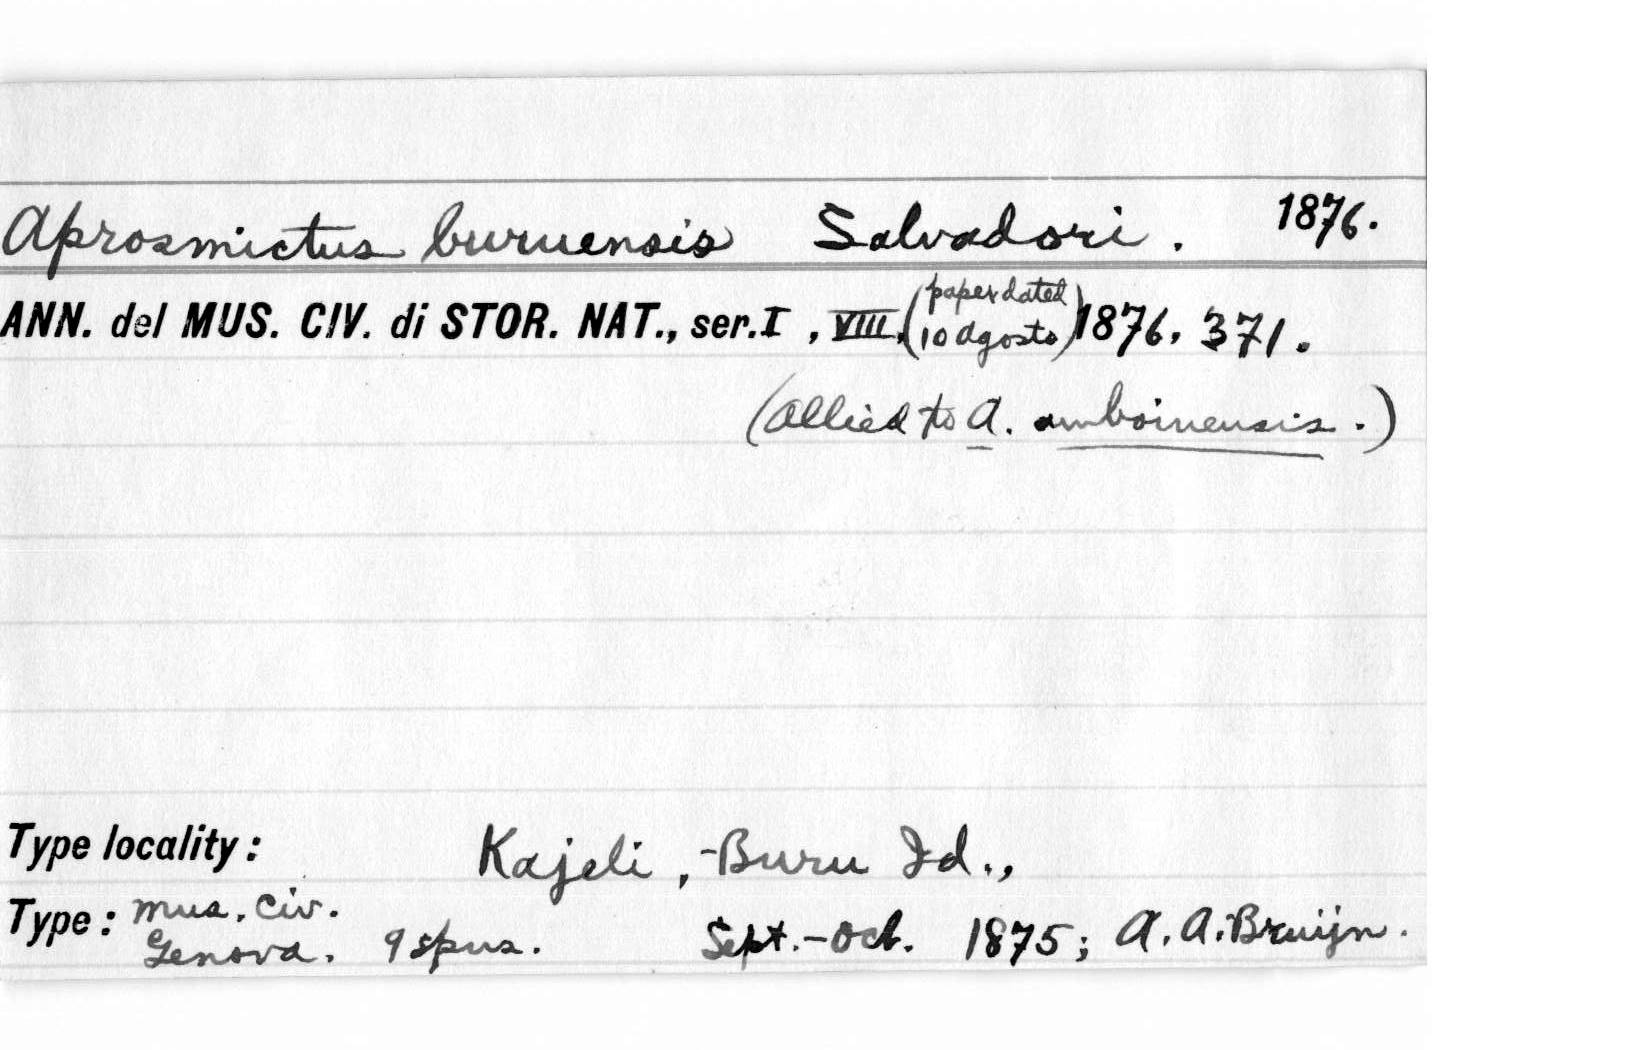 Aprosmictus buruensis Salvadori. 1876.
ANN. del MUS. CIV. di STOR. NAT., ser. I, VIII, (paper dated 10 Agosto) 1876, 371.
(Allied to A. amboinensis.)
Type locality: Kajeli, Buru Id.,
Type: Mus. Civ. Genova. 9 spns. Sept.-Oct. 1875; A. A. Bruijn.